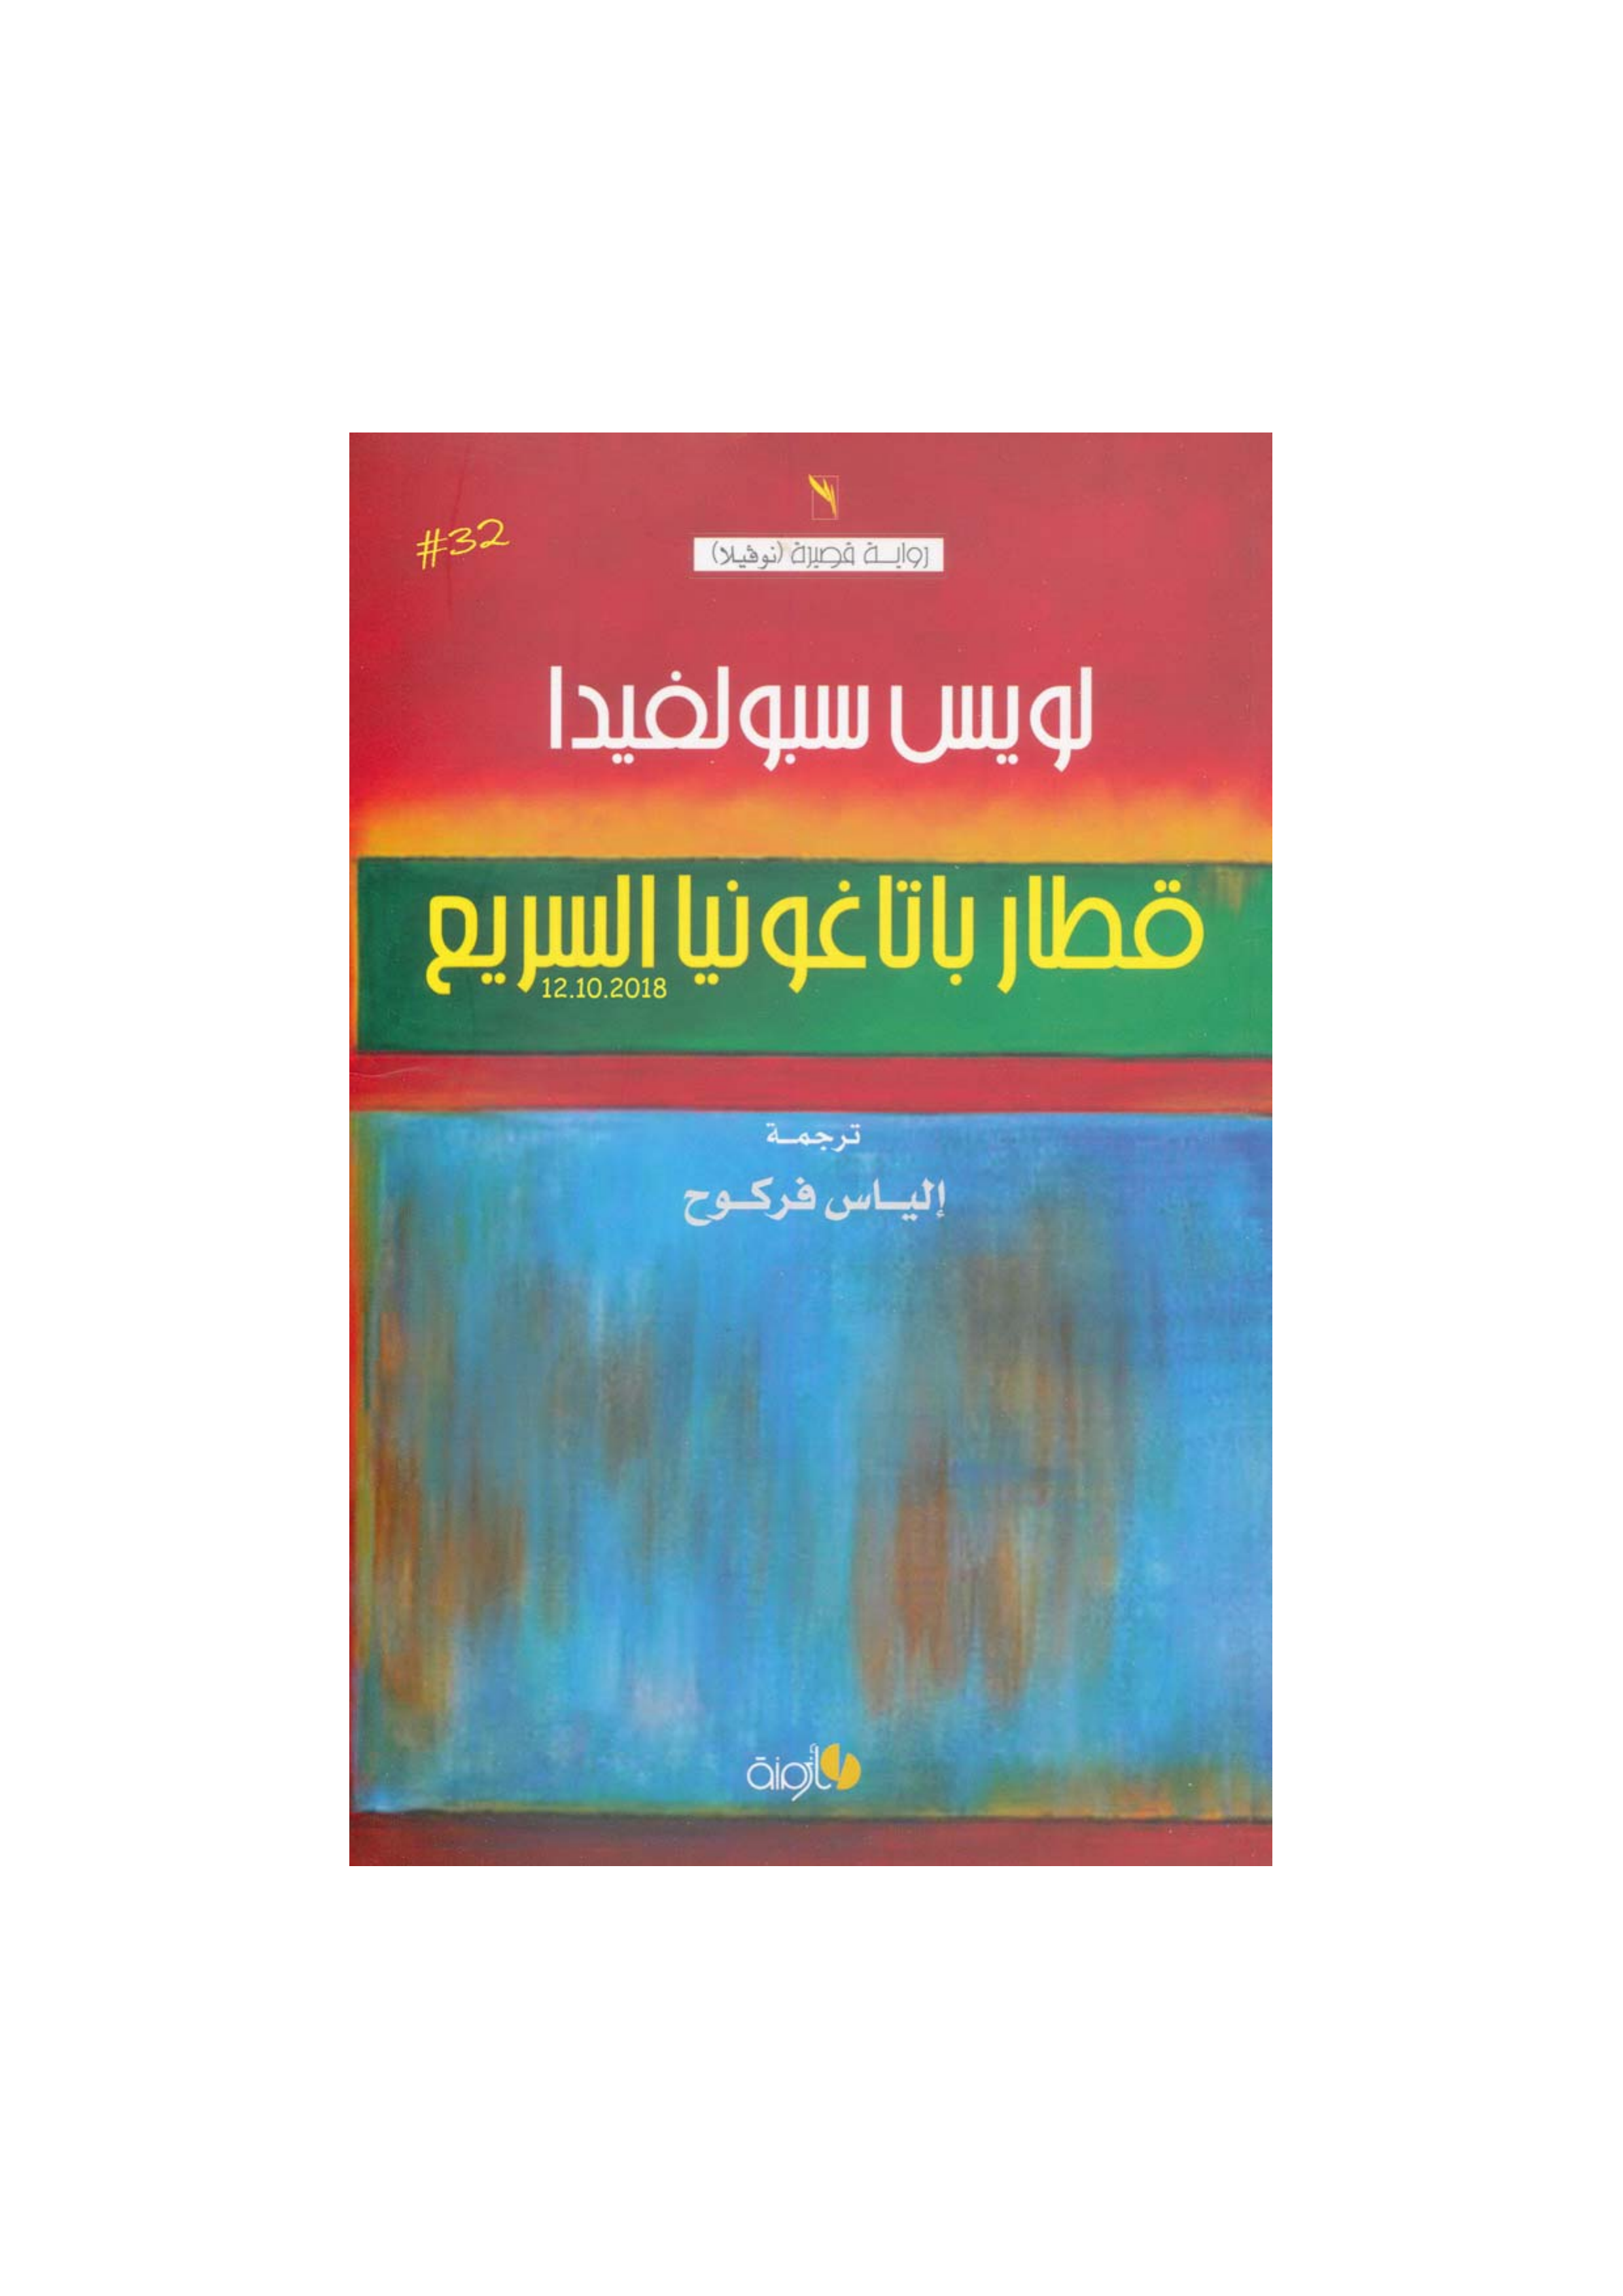 #32
رواية قصيرة (نوڤيلا)
لويس سبولفيدا
قطار باتاغونيا السريع
12.10.2018
ترجمة
إلياس فركوح
أزمنة